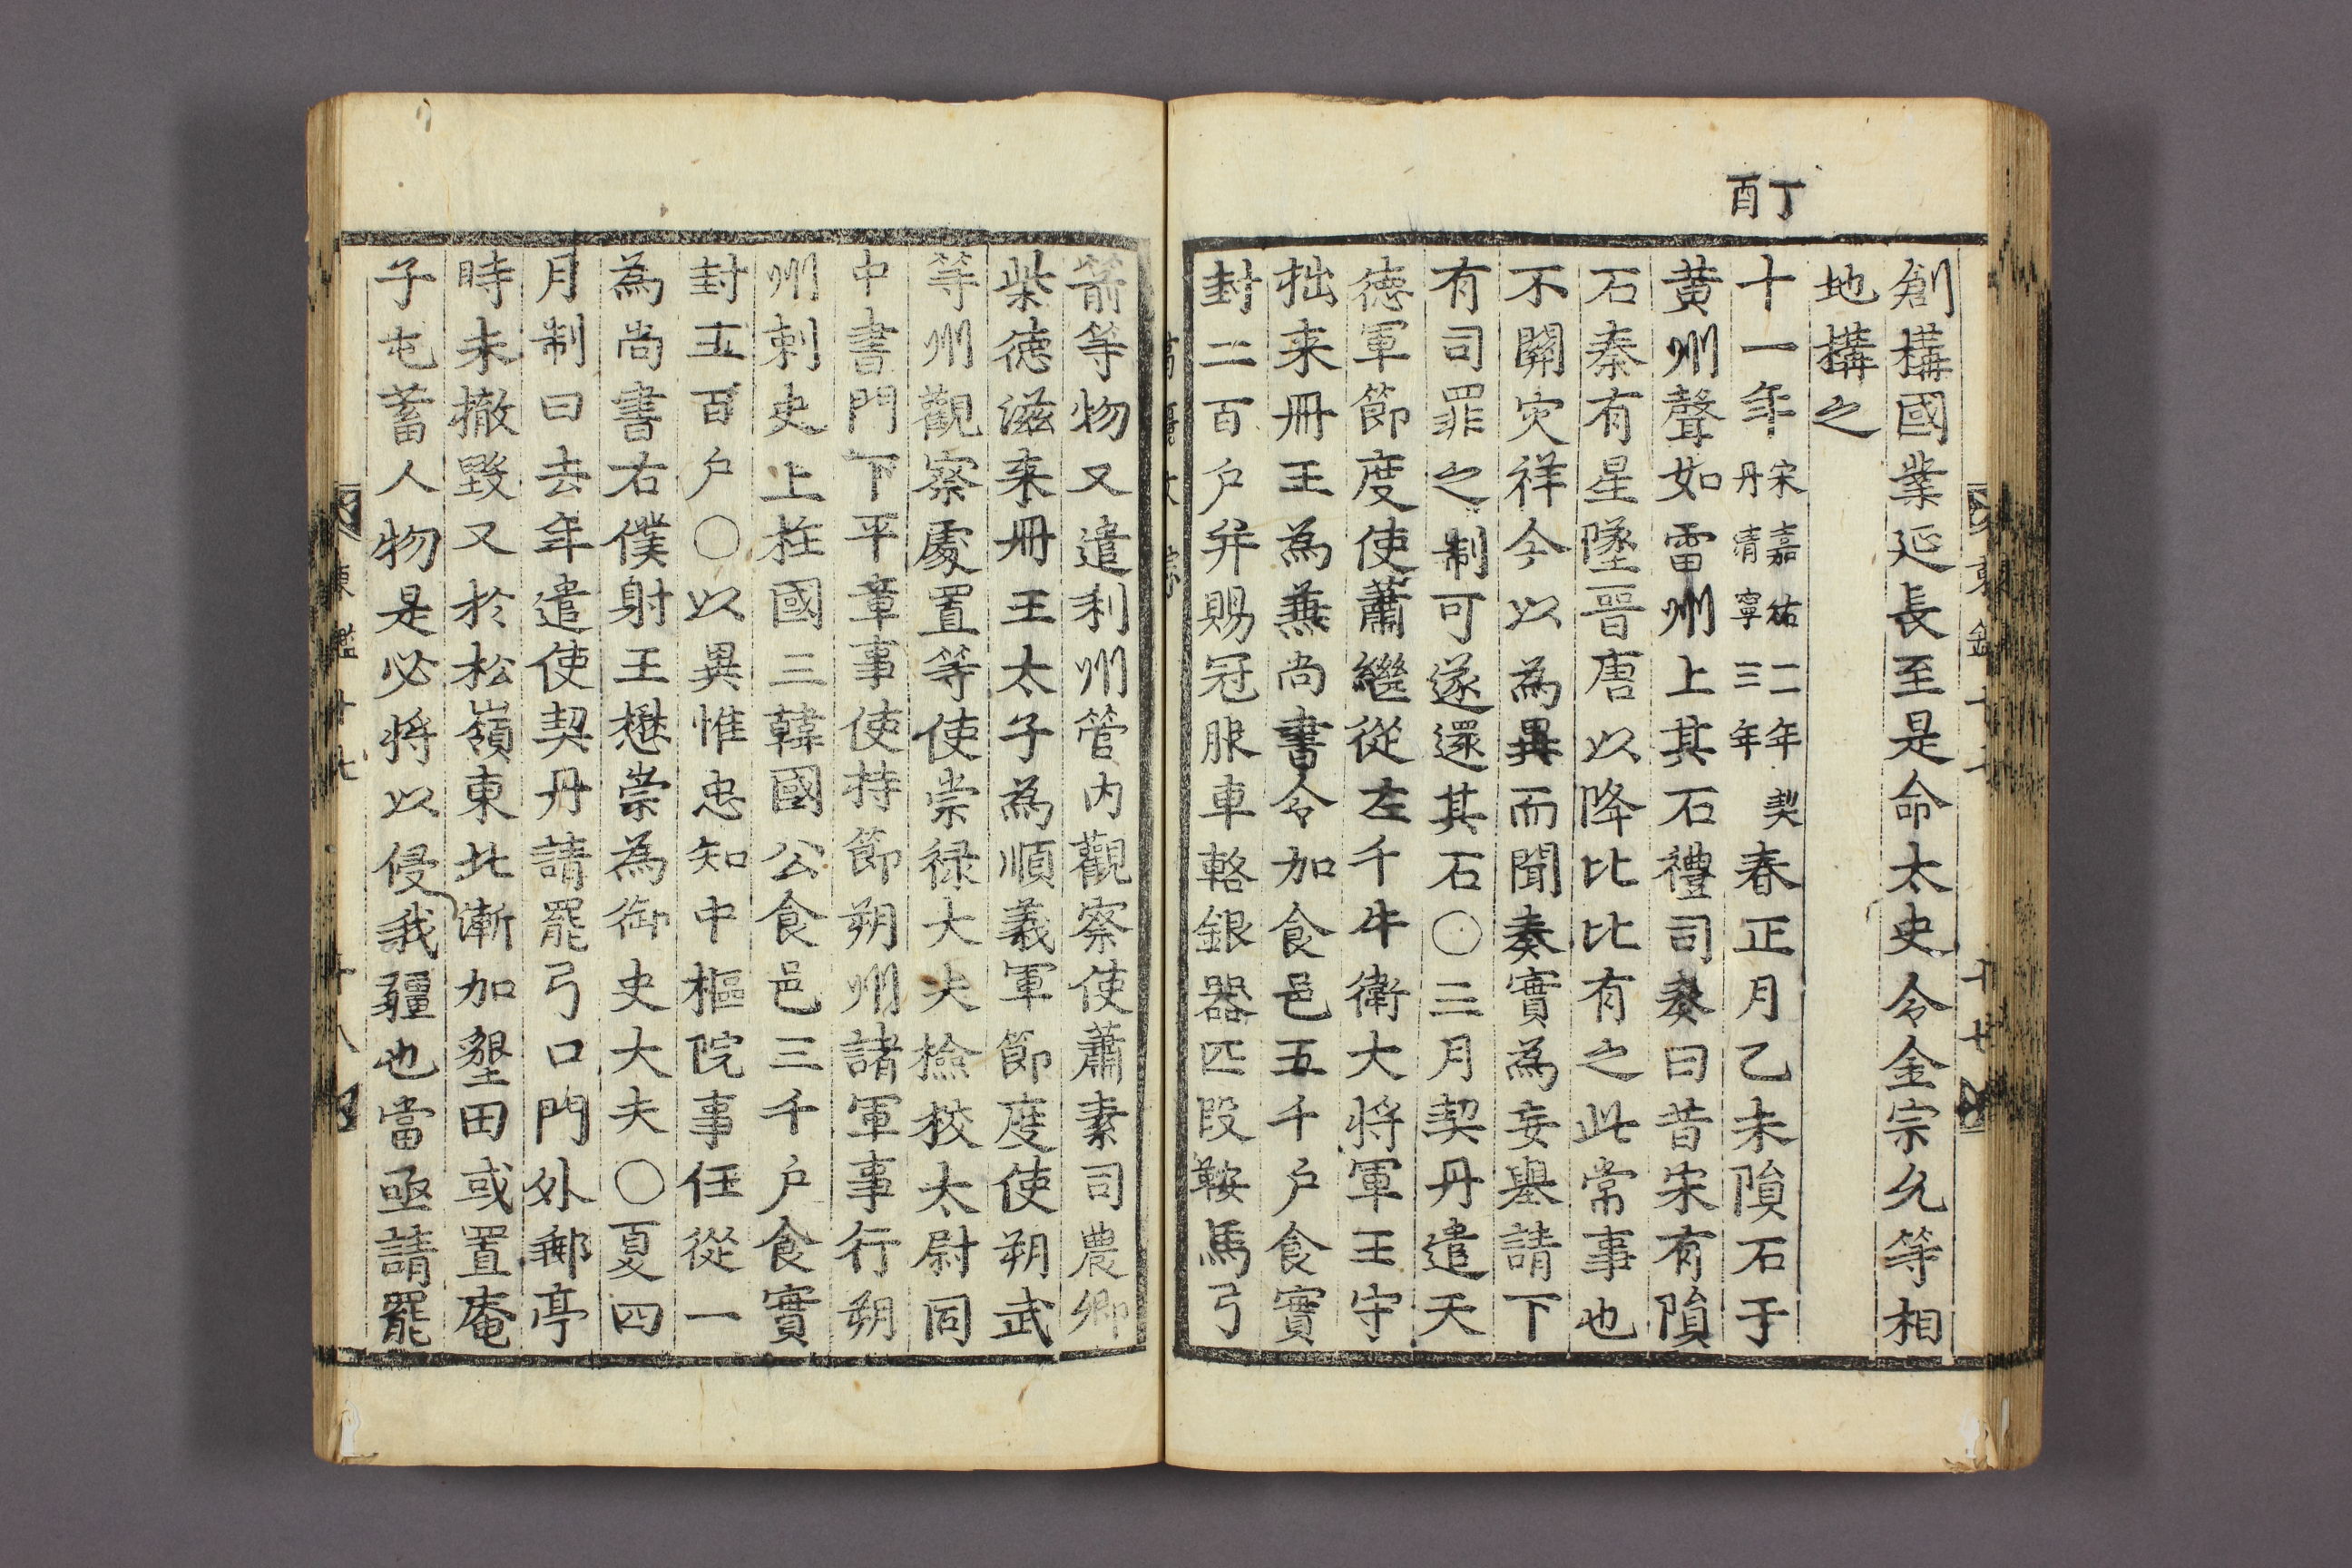 丁酉
創構國業延長至是命太史令金宗允等相
地構之
十一年宋嘉祐二年契丹清寧三年春正月乙未隕石于
黃州聲如雷州上其石禮司奏曰昔宋有隕
石秦有星墜晉唐以降比比有之此常事也
不關灾祥今以為異而聞奏實為妄擧請下
有司罪之制可遂還其石○三月契丹遣天
德軍節度使蕭繼從左千牛衛大將軍王守
拙来冊王為兼尚書令加食邑五千户食實
封二百户并賜冠服車輅銀器匹段鞍馬弓
箭等物又遣利州管内觀察使蕭素司農卿
柴德滋来冊王太子為順義軍節度使朔武
等州觀察處置等使崇禄大夫檢校太尉同
中書門下平章事使持節朔州諸軍事行朔
州刺史上柱國三韓國公食邑三千户食實
封五百户○以異惟忠知中樞院事任從一
為尚書右僕射王懋崇為御史大夫○夏四
月制曰去年遣使契丹請罷弓口門外郵亭
時未撤毁又於松嶺東北漸加墾田或置庵
子屯蓄人物是必將以侵我疆也當亟請罷
東鑑十七 十八